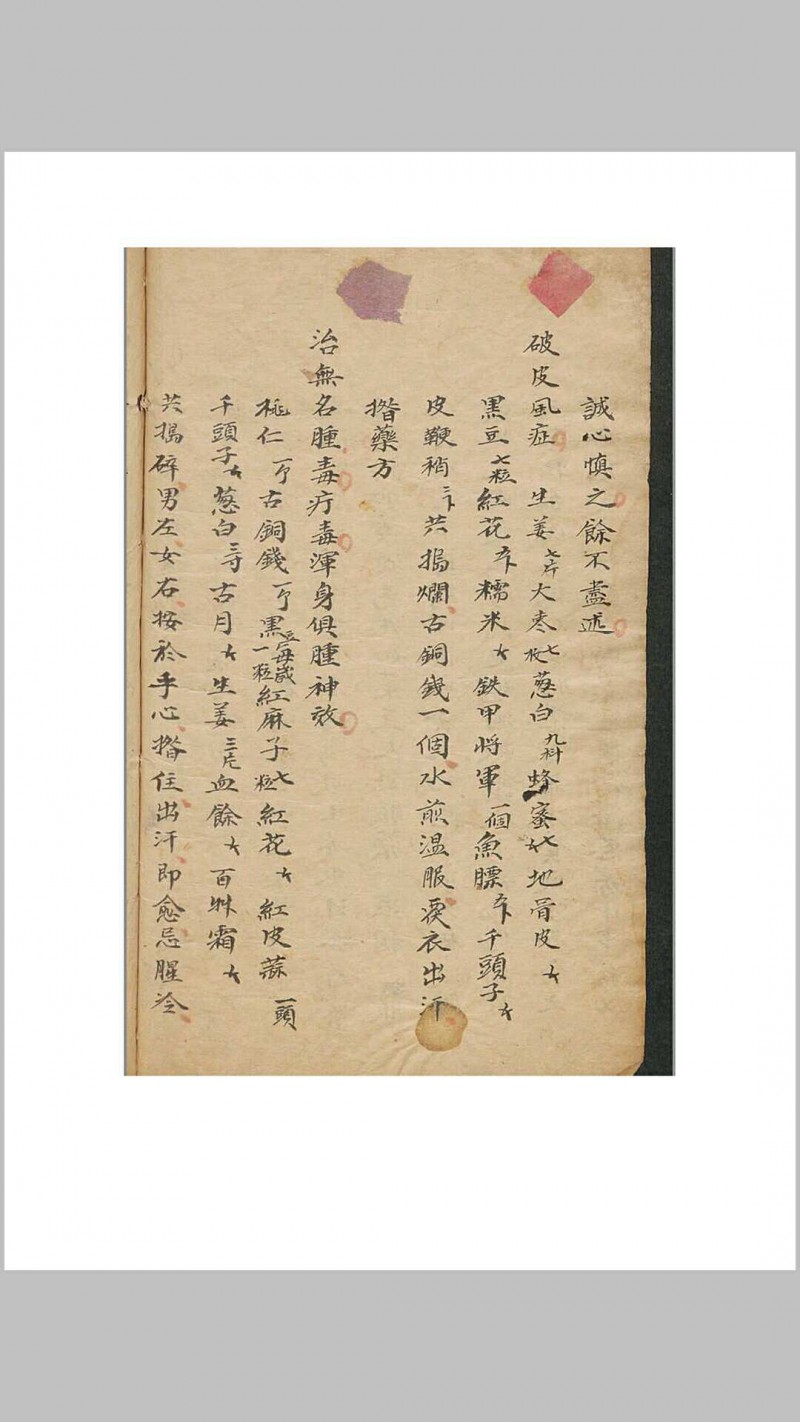 誠心慎之餘不盡述
破皮風症 生姜七片大枣七枚葱白九科蜂蜜七 地骨皮
黑豆七粒紅花 糯米 鉄甲将軍一個魚膘 千頭子
皮鞭稍 共搗爛古銅錢一個水煎温服 衣出汗
撍藥方
治無名腫毒疔毒渾身俱腫神效
桃仁 古銅錢 黑豆每歲一粒紅麻子七粒紅花 紅皮蒜一頭
千頭子 葱白三寸古月 生姜三片血餘 百艸霜
共搗碎男左女右按於手心撍住出汗即愈忌腥冷